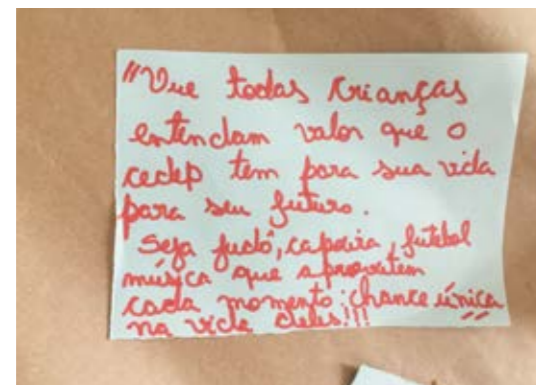 "Que todas crianças
entendam valor que o
cedep tem para sua vida
para seu futuro.
Seja judô, capoeira, futebol
música que aproveitem
cada momento: chance única
na vida deles!!!